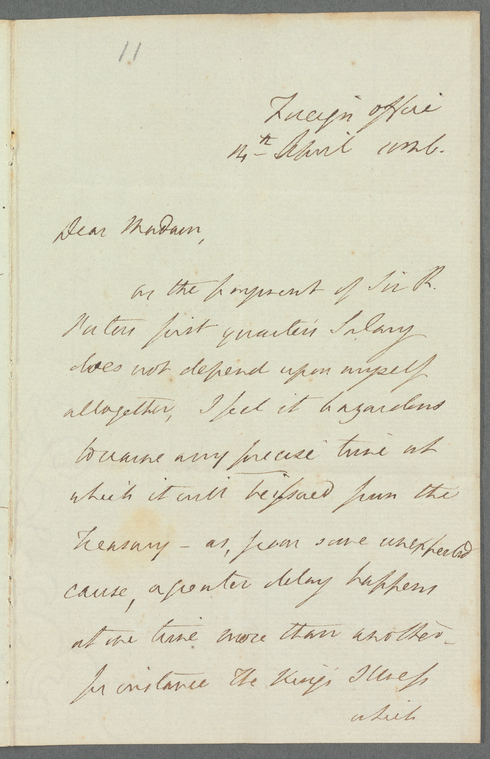 11
Foreign Office
14th April 1826.
Dear Madam,
as the payment of Sir R.
Porters first quarters Salary
does not depend upon myself
alltogether, I feel it hazardous
to name any precise time at
which it will be issued from the
Treasury - as, from some unexpected
cause, a greater delay happens
at one time more than another -
for instance The King's Illness
which